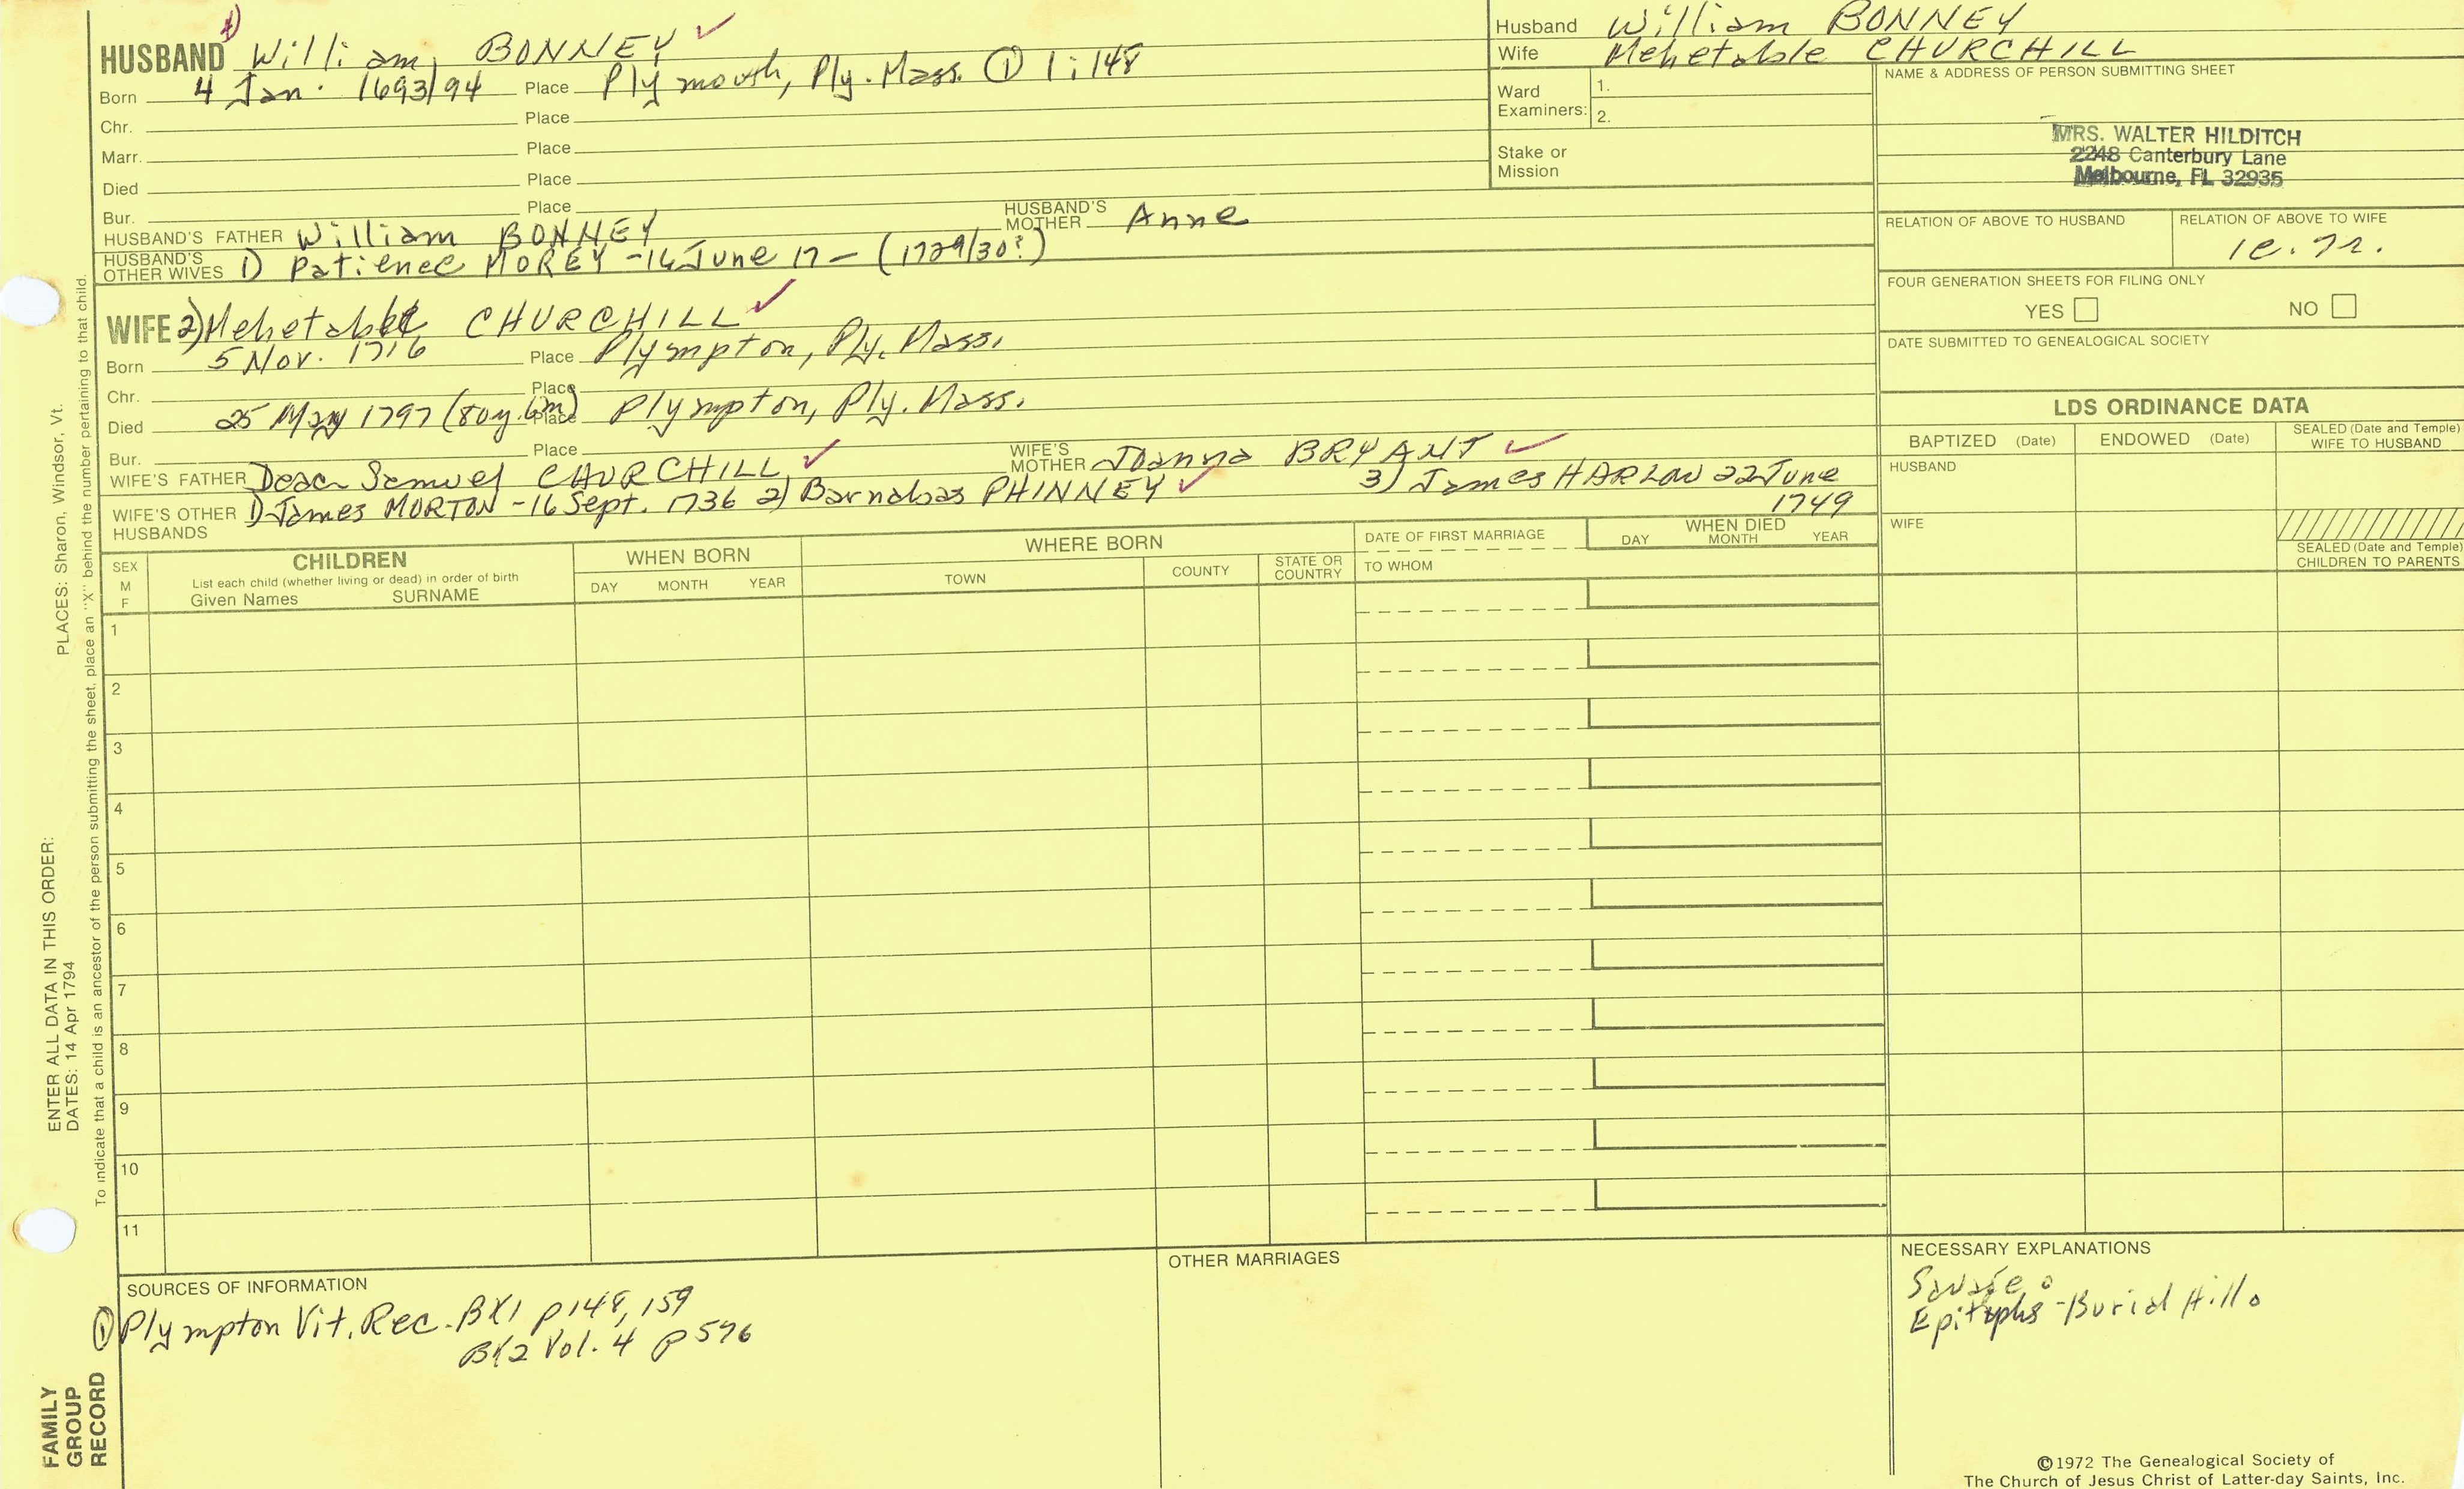 4)
HUSBAND William BONNEY ✓
Born 4 Jan. 1693/94 Place Plymouth, Ply. Mass. ① 1:148
Chr. Place
Marr. Place
Died Place
Bur. Place
HUSBAND'S FATHER William BONNEY HUSBAND'S MOTHER Anne
HUSBAND'S OTHER WIVES 1) Patience MOREY - 16 June 17- (1729/30?)
WIFE 2) Mehetable CHURCHILL ✓
Born 5 Nov. 1716 Place Plympton, Ply. Mass.
Chr. Place
Died 25 May 1797 (80y. 6m) Place Plympton, Ply. Mass.
Bur. Place
WIFE'S FATHER Deac Samuel CHURCHILL ✓ WIFE'S MOTHER Joanna BRYANT ✓
WIFE'S OTHER HUSBANDS 1) James MORTON - 16 Sept. 1736 2) Barnabas PHINNEY ✓ 3) James HARLOW 22 June
1749
Husband William BONNEY
Wife Mehetable CHURCHILL
Ward Examiners: 1.
2.
Stake or Mission
NAME & ADDRESS OF PERSON SUBMITTING SHEET
MRS. WALTER HILDITCH
2248 Canterbury Lane
Melbourne, FL 32935
RELATION OF ABOVE TO HUSBAND RELATION OF ABOVE TO WIFE
FOUR GENERATION SHEETS FOR FILING ONLY
YES NO
DATE SUBMITTED TO GENEALOGICAL SOCIETY
LDS ORDINANCE DATA
BAPTIZED (Date) ENDOWED (Date) SEALED (Date and Temple) WIFE TO HUSBAND
HUSBAND
WIFE
SEALED (Date and Temple) CHILDREN TO PARENTS
SEX M F
CHILDREN
List each child (whether living or dead) in order of birth
Given Names SURNAME
WHEN BORN
DAY MONTH YEAR
WHERE BORN
TOWN COUNTY STATE OR COUNTRY
DATE OF FIRST MARRIAGE
TO WHOM
WHEN DIED
DAY MONTH YEAR
1
2
3
4
5
6
7
8
9
10
11
SOURCES OF INFORMATION
① Plympton Vit. Rec. BK1 p148, 159
BK2 Vol. 4 p 576
OTHER MARRIAGES
NECESSARY EXPLANATIONS
Savage
Epitaphs - Burial Hill
©1972 The Genealogical Society of
The Church of Jesus Christ of Latter-day Saints, Inc.
ENTER ALL DATA IN THIS ORDER:
DATES: 14 Apr 1794
PLACES: Sharon, Windsor, Vt.
To indicate that a child is an ancestor of the person submitting the sheet, place an "X" behind the number pertaining to that child.
FAMILY
GROUP
RECORD